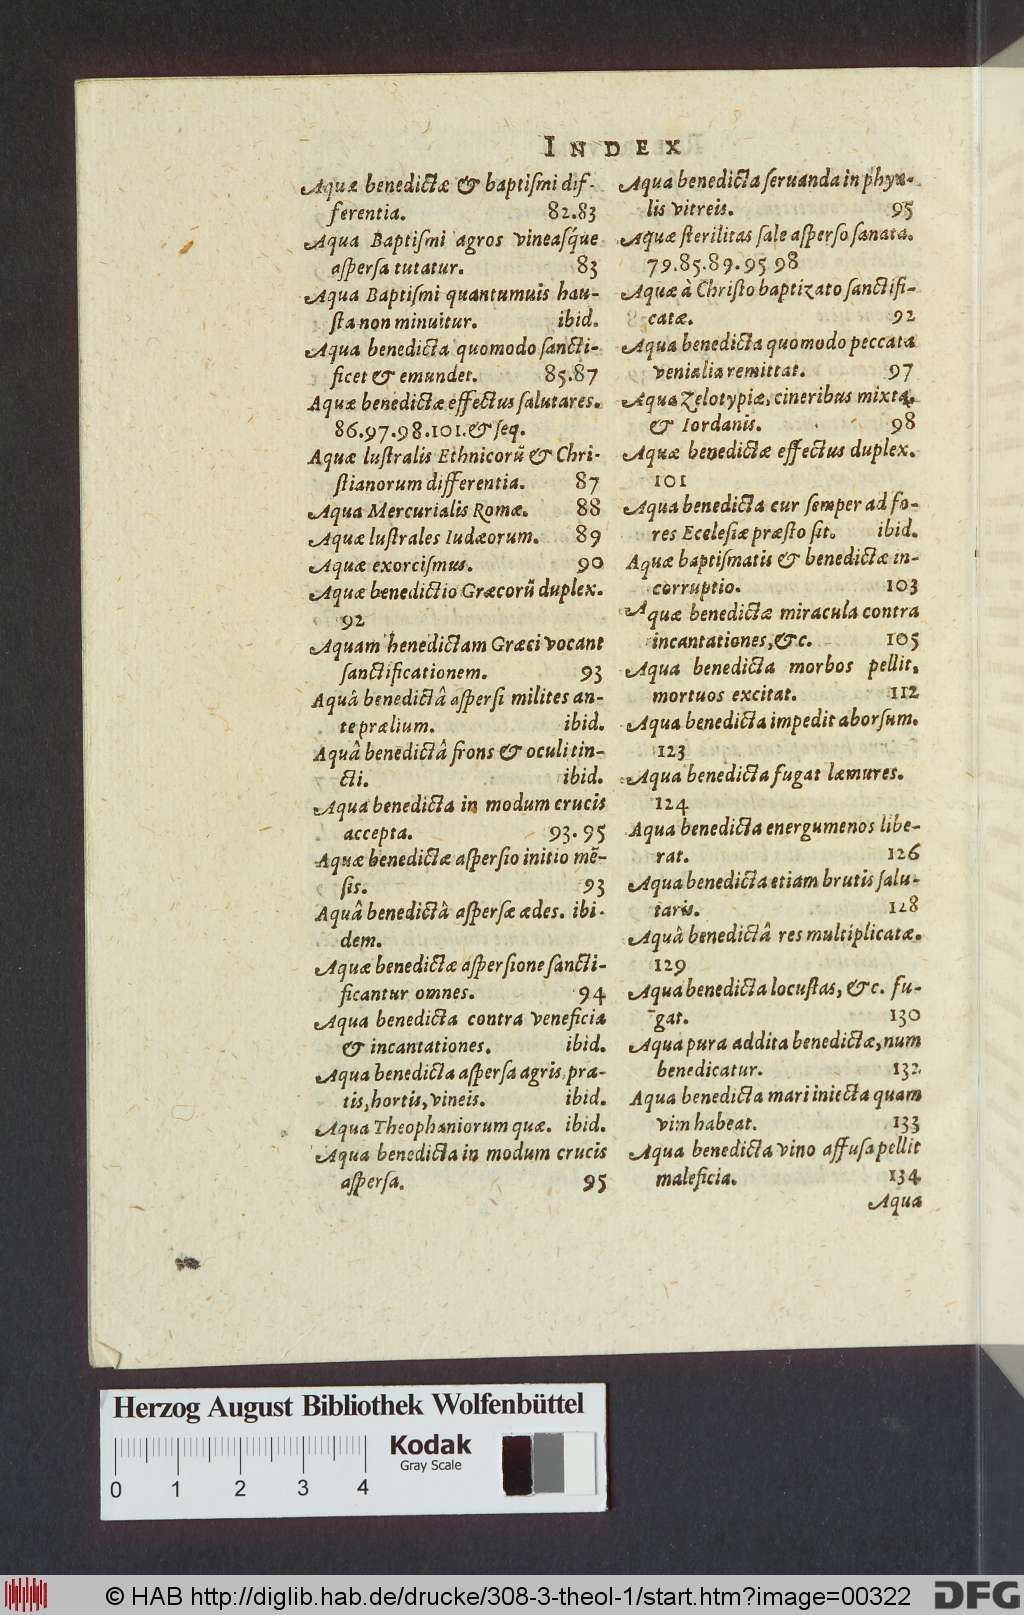 INDEX
Aquæ benedictæ & baptiſmi dif-
ferentia. 82.83
Aqua Baptiſmi agros vineaſq́ue
aſperſa tutatur. 83
Aqua Baptiſmi quantumuis hau-
ſta non minuitur. ibid.
Aqua benedicta quomodo ſancti-
ficet & emundet. 85.87
Aquæ benedictæ effectus ſalutares.
86.97.98.101.& ſeq.
Aquæ luſtralis Ethnicorũ & Chri-
ſtianorum differentia. 87
Aqua Mercurialis Romæ. 88
Aquæ luſtrales Iudæorum. 89
Aquæ exorciſmus. 90
Aquæ benedictio Græcorũ duplex.
92
Aquam benedictam Græci vocant
ſanctificationem. 93
Aquâ benedictâ aſperſi milites an-
te prælium. ibid.
Aquâ benedictâ frons & oculi tin-
cti. ibid.
Aqua benedicta in modum crucis
accepta. 93.95
Aquæ benedictæ aſperſio initio mẽ-
ſis. 93
Aquâ benedictâ aſperſæ ædes. ibi-
dem.
Aquæ benedictæ aſperſione ſancti-
ficantur omnes. 94
Aqua benedicta contra veneficia
& incantationes. ibid.
Aqua benedicta aſperſa agris, pra-
tis, hortis, vineis. ibid.
Aqua Theophaniorum quæ. ibid.
Aqua benedicta in modum crucis
aſperſa. 95
Aqua benedicta ſeruanda in phya-
lis vitreis. 95
Aquæ ſterilitas ſale aſperſo ſanata.
79.85.89.95 98
Aquæ à Chriſto baptizato ſanctifi-
catæ. 92
Aqua benedicta quomodo peccata
venialia remittat. 97
Aqua Zelotypiæ, cineribus mixta,
& Iordanis. 98
Aquæ benedictæ effectus duplex.
101
Aqua benedicta cur ſemper ad fo-
res Eccleſiæ præſto ſit. ibid.
Aquæ baptiſmatis & benedictæ in-
corruptio. 103
Aquæ benedictæ miracula contra
incantationes, &c. 105
Aqua benedicta morbos pellit,
mortuos excitat. 112
Aqua benedicta impedit aborſum.
123
Aqua benedicta fugat læmures.
124
Aqua benedicta energumenos libe-
rat. 126
Aqua benedicta etiam brutis ſalu-
taris. 128
Aquâ benedictâ res multiplicatæ.
129
Aqua benedicta locuſtas, &c. fu-
gat. 130
Aqua pura addita benedictæ, num
benedicatur. 132
Aqua benedicta mari iniecta quam
vim habeat. 133
Aqua benedicta vino affuſa pellit
maleficia. 134
Aqua
Herzog August Bibliothek Wolfenbüttel
Kodak
Gray Scale
0 1 2 3 4
© HAB http://diglib.hab.de/drucke/308-3-theol-1/start.htm?image=00322
DFG